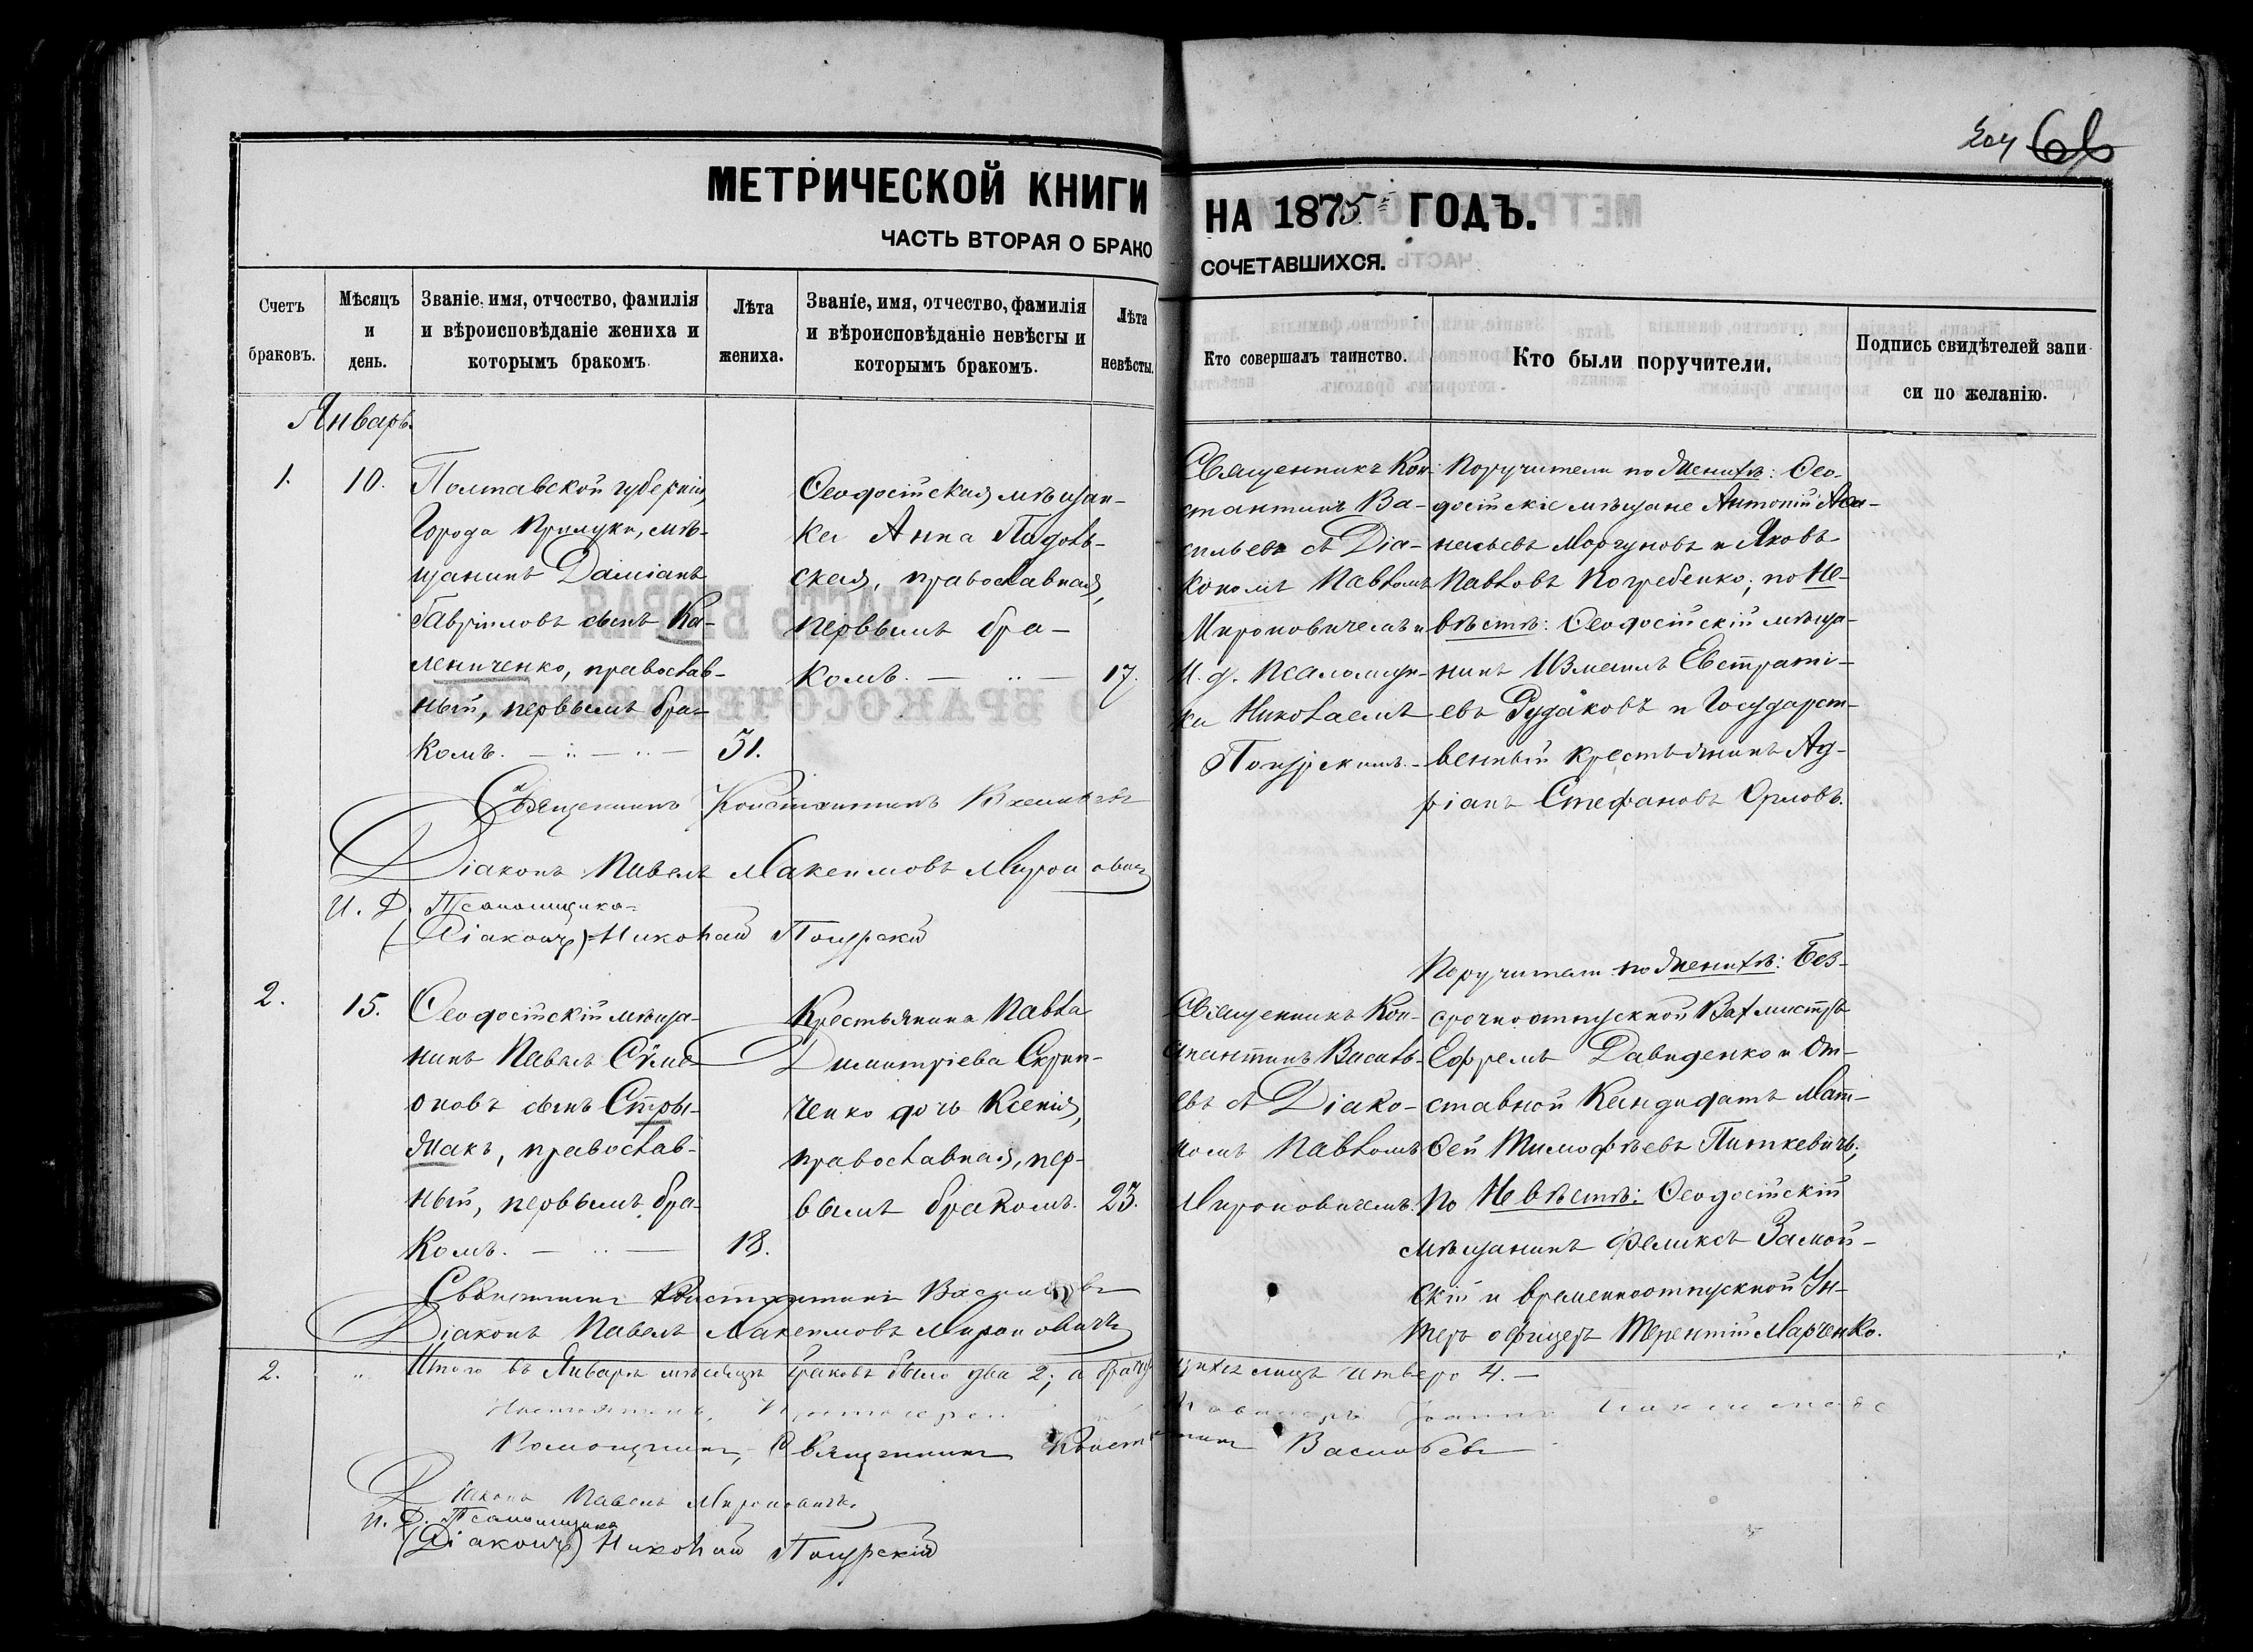 204 66
МЕТРИЧЕСКОЙ КНИГИ НА 1875 ГОДЪ.
ЧАСТЬ ВТОРАЯ О БРАКОСОЧЕТАВШИХСЯ.
Счетъ браковъ.
Мѣсяцъ и день.
Званіе, имя, отчество, фамилія
и вѣроисповѣданіе жениха и
которымъ бракомъ.
Лѣта жениха.
Званіе, имя, отчество, фамилія
и вѣроисповѣданіе невѣсты и
которымъ бракомъ.
Лѣта невѣсты.
Кто совершалъ таинство.
Кто были поручители.
Подпись свидѣтелей запи
си по желанію.
Январь.
1.
10.
Полтавской губерніи,
города Прилуки, мѣ-
щанинъ Даміанъ
Гавріиловъ сынъ Ка-
лениченко, православ-
ный, первымъ бра-
комъ.
31.
Ѳеодосійская мѣщан-
ка Анна Падоль-
ская, православная,
первымъ бра-
комъ.
17.
Священникъ Кон-
стантинъ Ва-
сильевъ съ Діа-
кономъ Павломъ
Мироновичемъ и
И. д. Псаломщи-
ка Николаемъ
Поручители по Женихѣ: Ѳео-
досійскіе мѣщане Антоній Аѳа-
насьевъ Моргуновъ и Яковъ
Павловъ Погребенко; по Не-
вѣстѣ: Ѳеодосійскій мѣща-
нинъ Измаилъ Евстраті-
евъ Рудаковъ и Государст-
венный крестьянинъ Ад-
ріанъ Стефановъ Орловъ.
Священникъ Константинъ Васильевъ
Діаконъ Павелъ Максимовъ Мироновичъ
И. Д. Псаломщика
(Діаконъ) Николай
2.
15.
Ѳеодосійскій мѣща-
нинъ Павелъ Сѵме-
оновъ сынъ Стры-
жакъ, православ-
ный, первымъ бра-
комъ.
18.
Крестьянина Павла
Димитріева Скрип-
ченко дочь Ксенія,
православная, пер-
вымъ бракомъ.
23.
Священникъ Кон-
стантинъ Василь-
евъ съ Діако-
номъ Павломъ
Мироновичемъ.
Поручители по Женихѣ: Без-
срочноотпускной Вахмистръ
Ефремъ Давиденко и От-
ставной Кандидатъ Мат-
ѳей Тимофѣевъ Питкевичъ;
По Невѣстѣ: Ѳеодосійскій
мѣщанинъ Феликсъ Замой-
скій и временноотпускной Ун-
теръ офицеръ Терентій Марченко.
Священникъ Константинъ Васильевъ
Діаконъ Павелъ Максимовъ Мироновичъ
2. Итого въ Январѣ мѣсяцѣ браковъ было два 2; а брачущихся лицъ четверо 4.
Настоятель, Протоіерей
Помощникъ, Священникъ Константинъ Васильевъ
Діаконъ Павелъ Мироновичъ
И. Д. Псаломщика
(Діаконъ) Николай